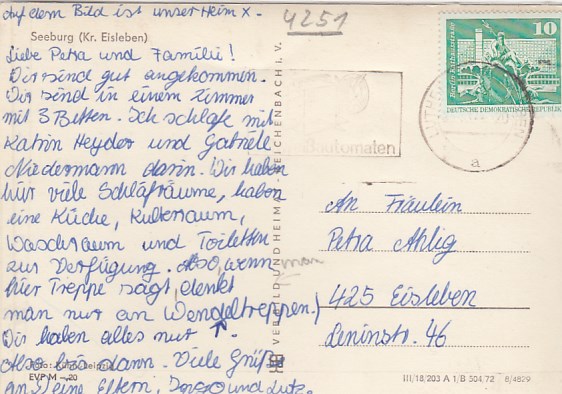 Auf dem Bild ist unser Heim X.
4251
Seeburg (Kr. Eisleben)
Liebe Petra und Familie!
Wir sind gut angekommen.
Wir sind in einem Zimmer
mit 3 Betten. Ich schlafe mit
Katrin Heyder und Gabriele
Niedermann darin. Wir haben
hier viele Schlafräume, haben
eine Küche, Kulturraum,
Waschraum und Toiletten
zur Verfügung. Also, wenn man
hier Treppe sagt, denkt
man nur an Wendeltreppen!
Wir haben alles nur ↑.
Also bis dann. Viele Grüße
an Deine Eltern, und Lutz.
Foto: Leipzig
EVP M –,20
VERLAG BILD UND HEIMAT REICHENBACH I. V.
automaten
10
DEUTSCHE DEMOKRATISCHE REPUBLIK
a
An Fräulein
Petra Ahlig
425 Eisleben
Leninstr. 46
III/18/203 A 1/B 504/72 8/4829